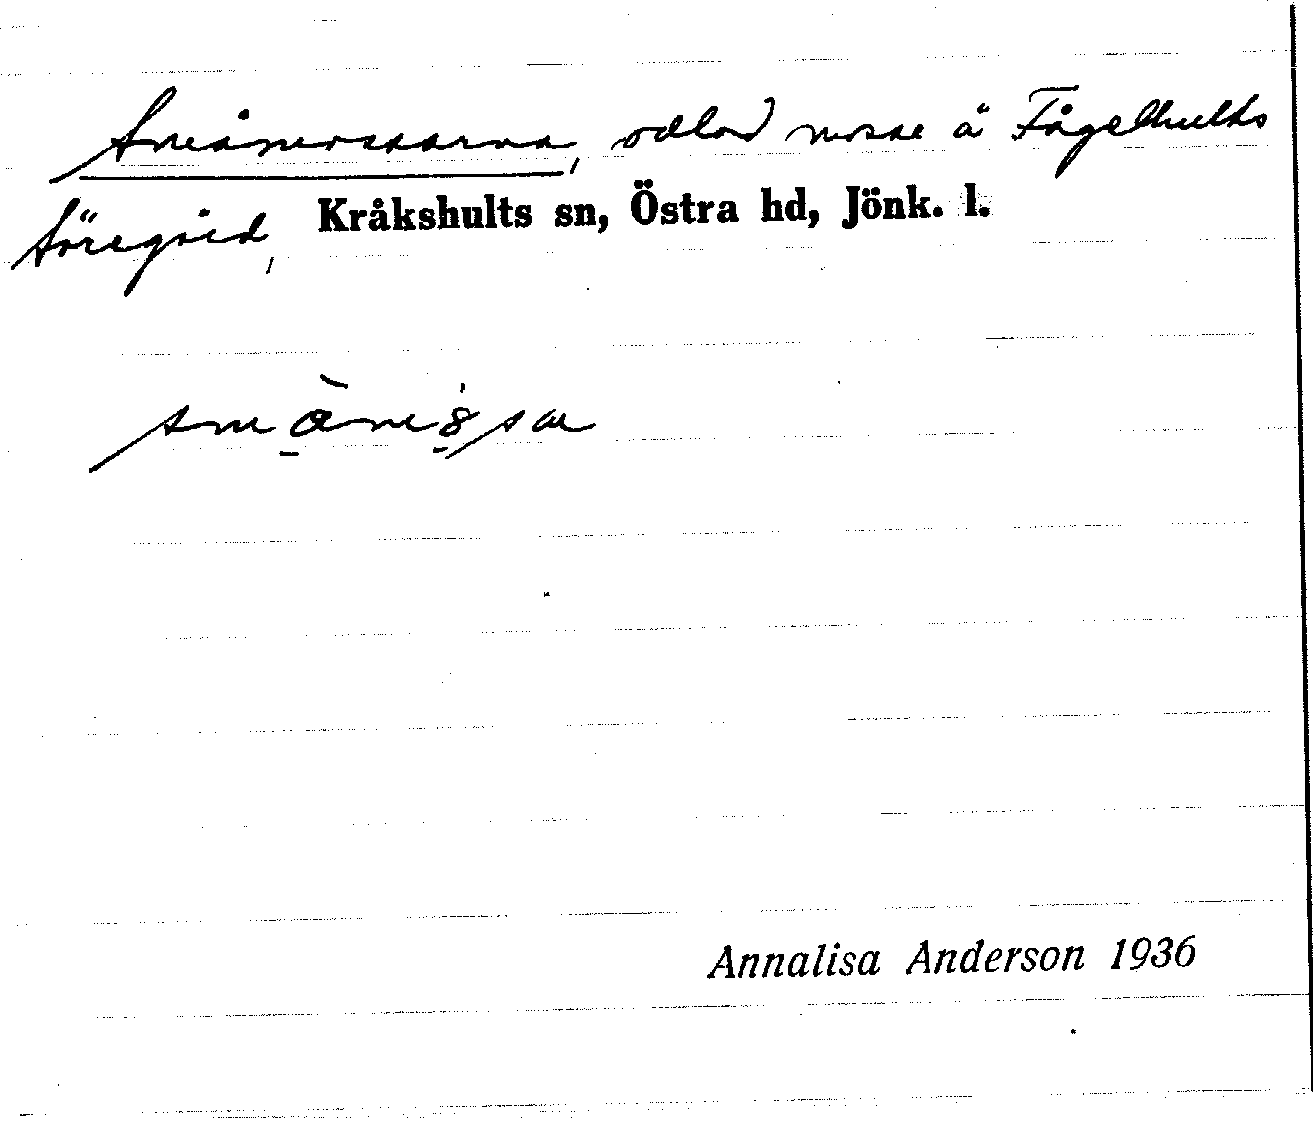 Småmossarna, odlad mosse å Fågelhults
Söregård, Kråkshults sn, Östra hd, Jönk. l.
Annalisa Anderson 1936